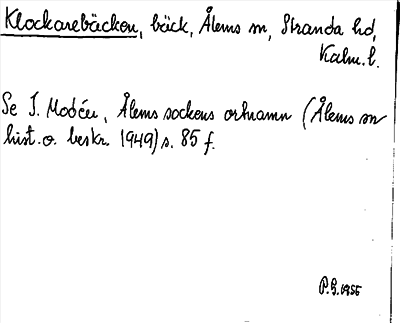 Klockarebäcken, bäck, Ålems sn, Stranda hd,
Kalm. l.
Se I. Modéer, Ålems sockens ortnamn (Ålems sn
hist. o. beskr. 1949) s. 85 f.
P.G. 1956